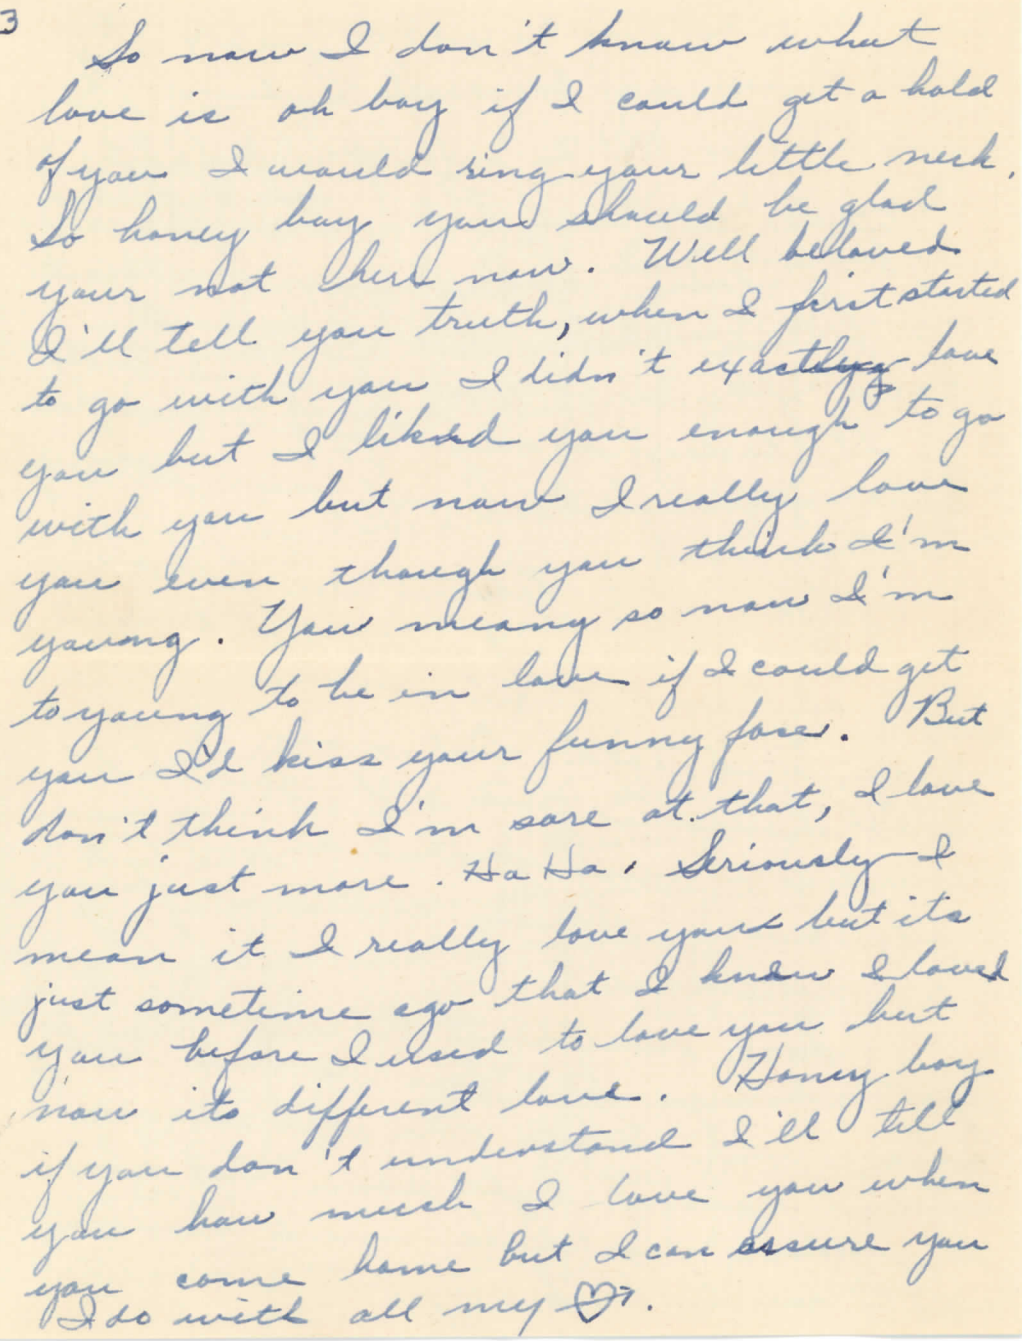 3
So now I don't know what
love is oh boy if I could get a hold
of you I would ring your little neck.
So honey boy you should be glad
your not here now. Well beloved
I'll tell you truth, when I first started
to go with you I didn't exactly love
you but I liked you enough to go
with you but now I really love
you even though you think I'm
young. You meany so now I'm
to young to be in love if I could get
you I'd kiss your funny fase. But
don't think I'm sore at that, I love
you just more. Ha Ha. Seriously I
mean it I really love you but its
just sometime ago that I knew I loved
you before I used to love you but
now its different love. Honey boy
if you don't understand I'll tell
you how much I love you when
you come home but I can assure you
I do with all my.